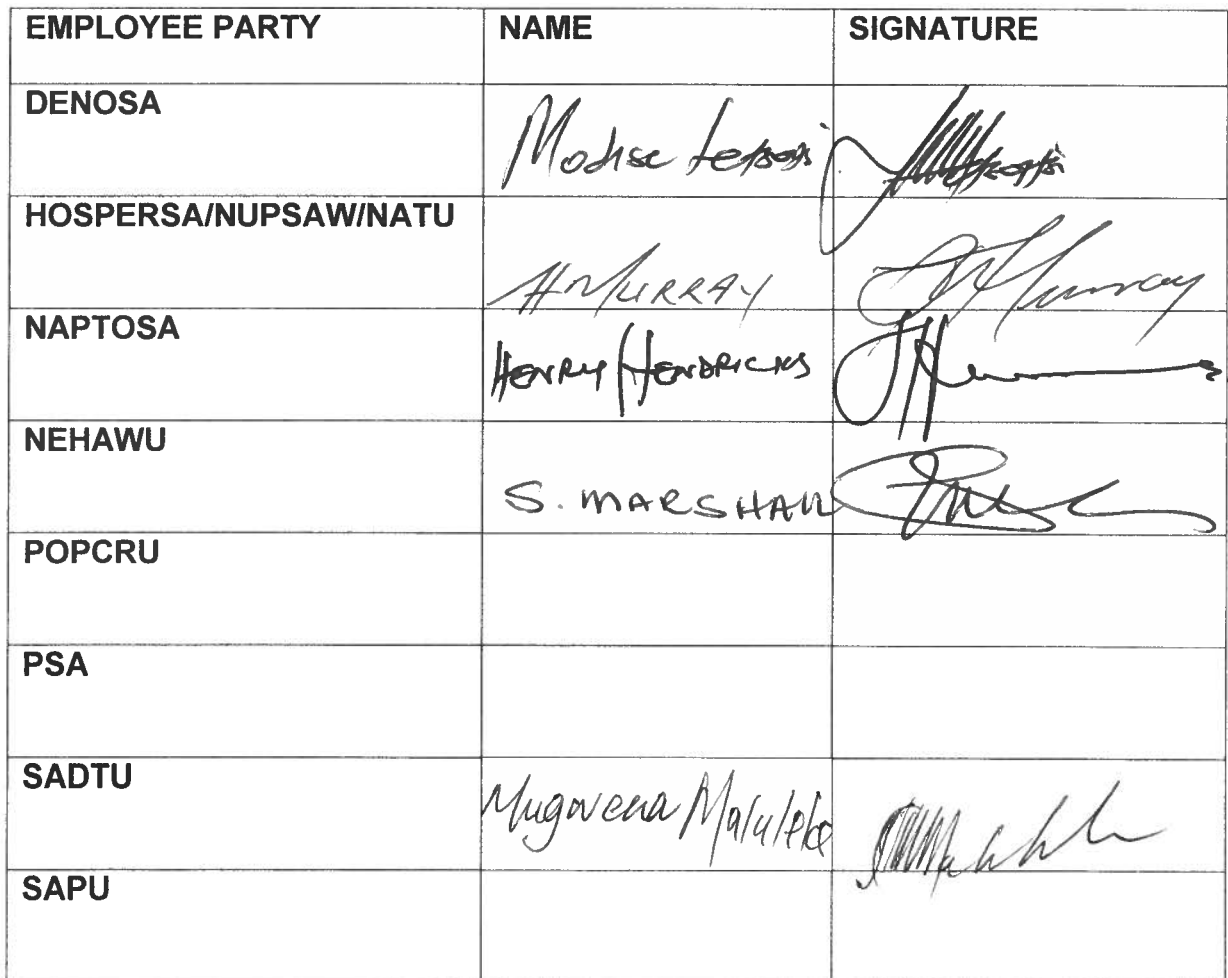 EMPLOYEE PARTY NAME SIGNATURE
DENOSA Modise Letsosi
HOSPERSA/NUPSAW/NATU
H MURRAY Murray
NAPTOSA
HENRY HENDRICKS
NEHAWU
S. MARSHALL
POPCRU
PSA
SADTU
Mugwena Maluleke
SAPU